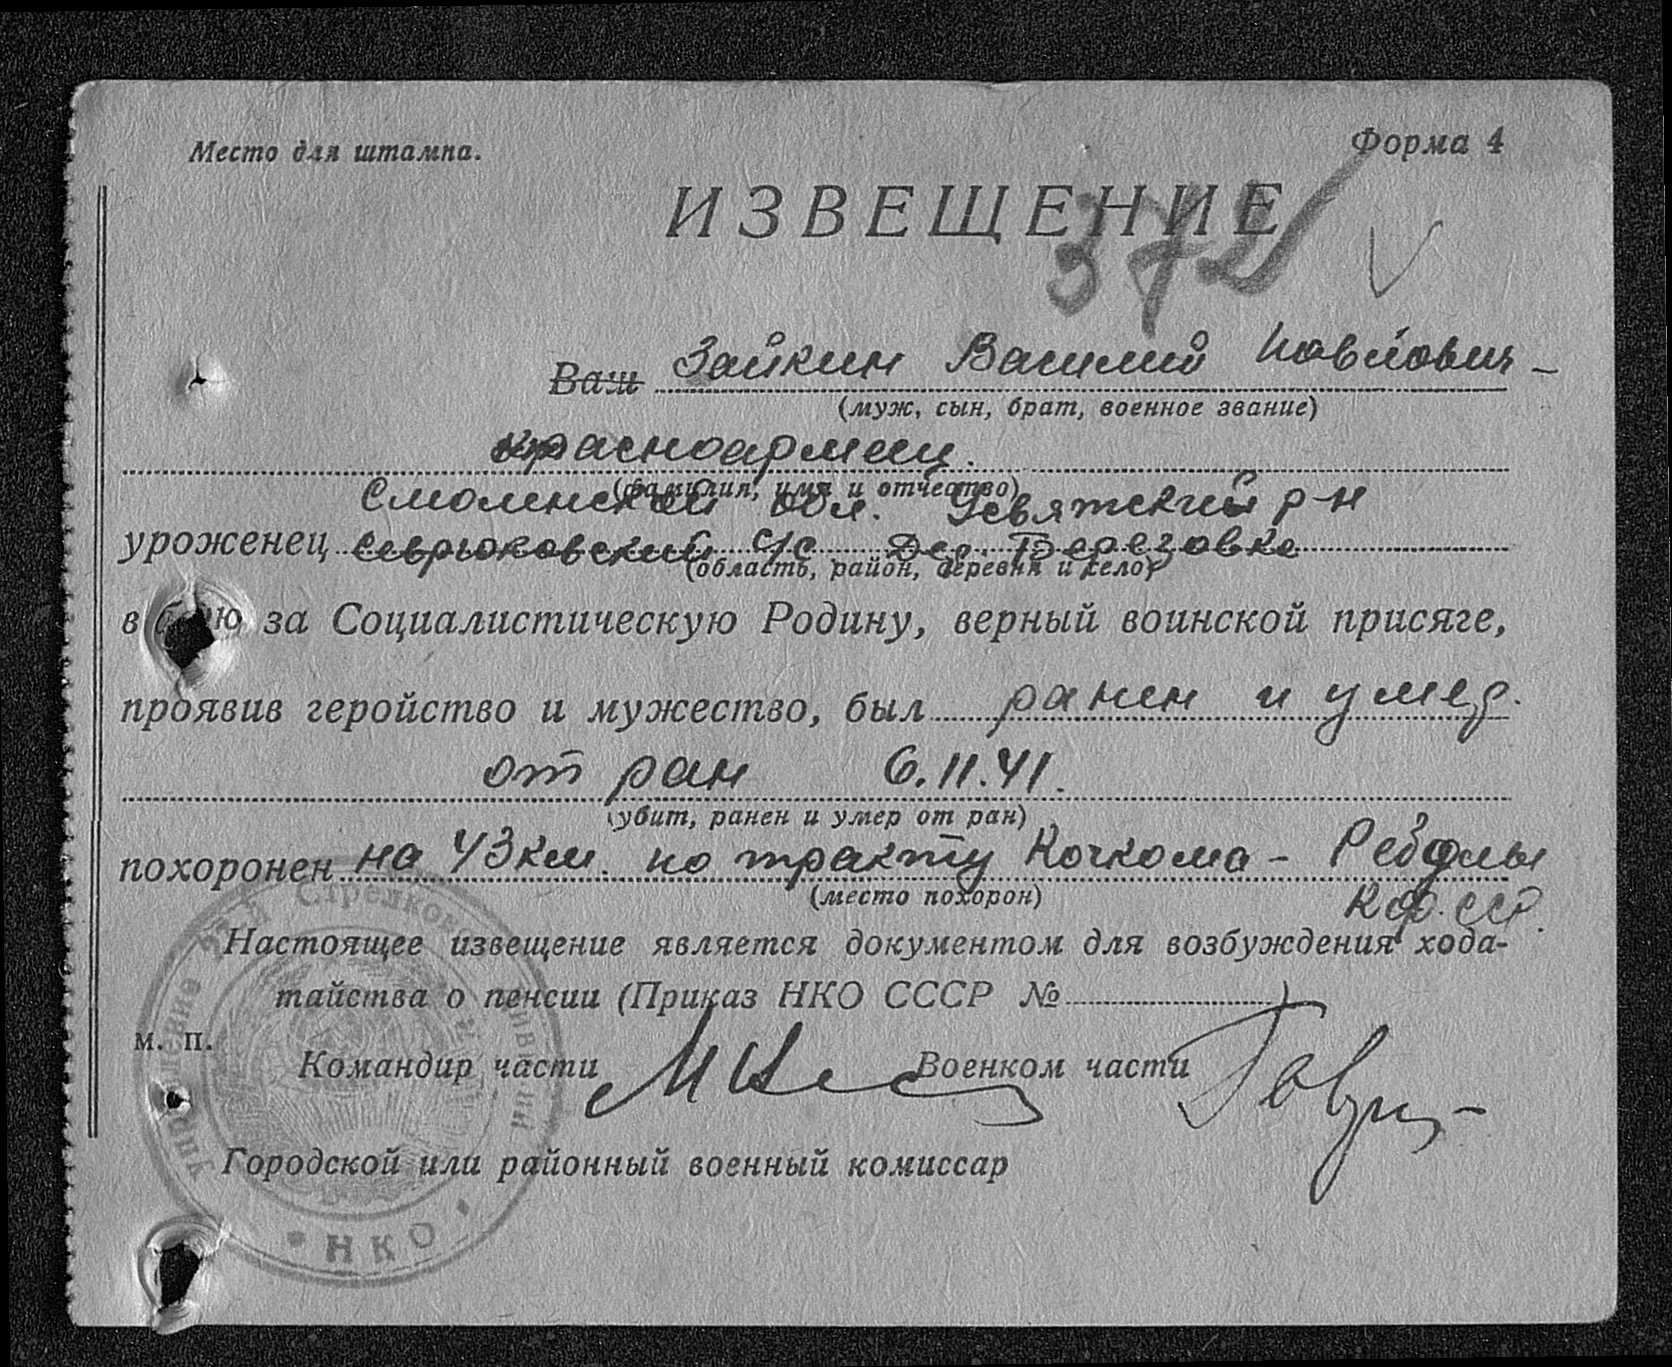 Место для штампа.
Форма 4
ИЗВЕЩЕНИЕ
372
Ваш Зайкин Василий Павлович –
(муж, сын, брат, военное звание)
красноармеец.
(фамилия, имя и отчество)
Смоленской обл. Усвятский р-н
уроженец Севрюковский с/с Дер. Березовка
(область, район, деревня и село)
в бою за Социалистическую Родину, верный воинской присяге,
проявив геройство и мужество, был ранен и умер.
от ран 6.11.41.
(убит, ранен и умер от ран)
похоронен на 43 км. по тракту Кочкома – Реболы
(место похорон)
К.ф.ССР.
Настоящее извещение является документом для возбуждения хода-
тайства о пенсии (Приказ НКО СССР №          )
м. п.
Командир части
Военком части
Городской или районный военный комиссар
Управление Стрелковой дивизии
НКО